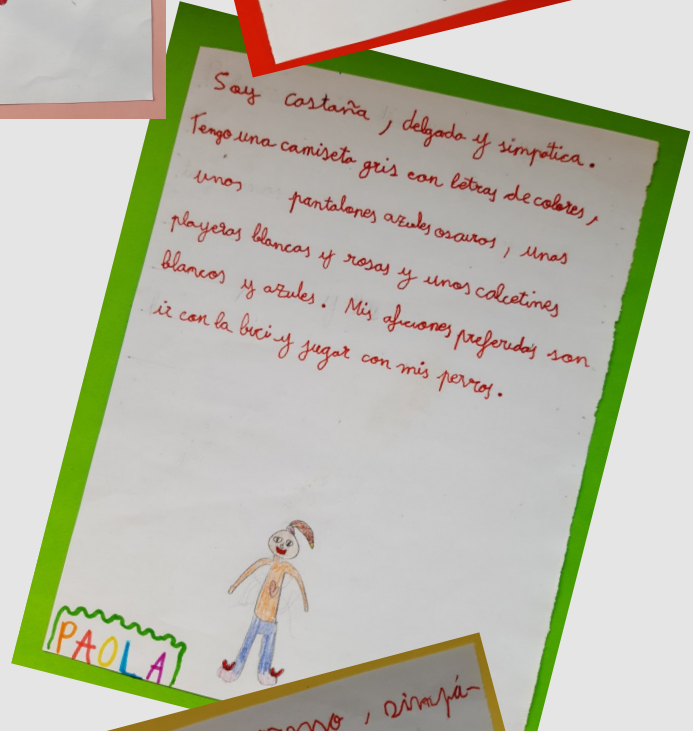 Soy castaña, delgada y simpática.
Tengo una camiseta gris con letras de colores,
unos pantalones azules oscuros, unas
playeras blancas y rosas y unos calcetines
blancos y azules. Mis aficiones preferidas son
ir con la bici y jugar con mis perros.
PAOLA
, simpá-